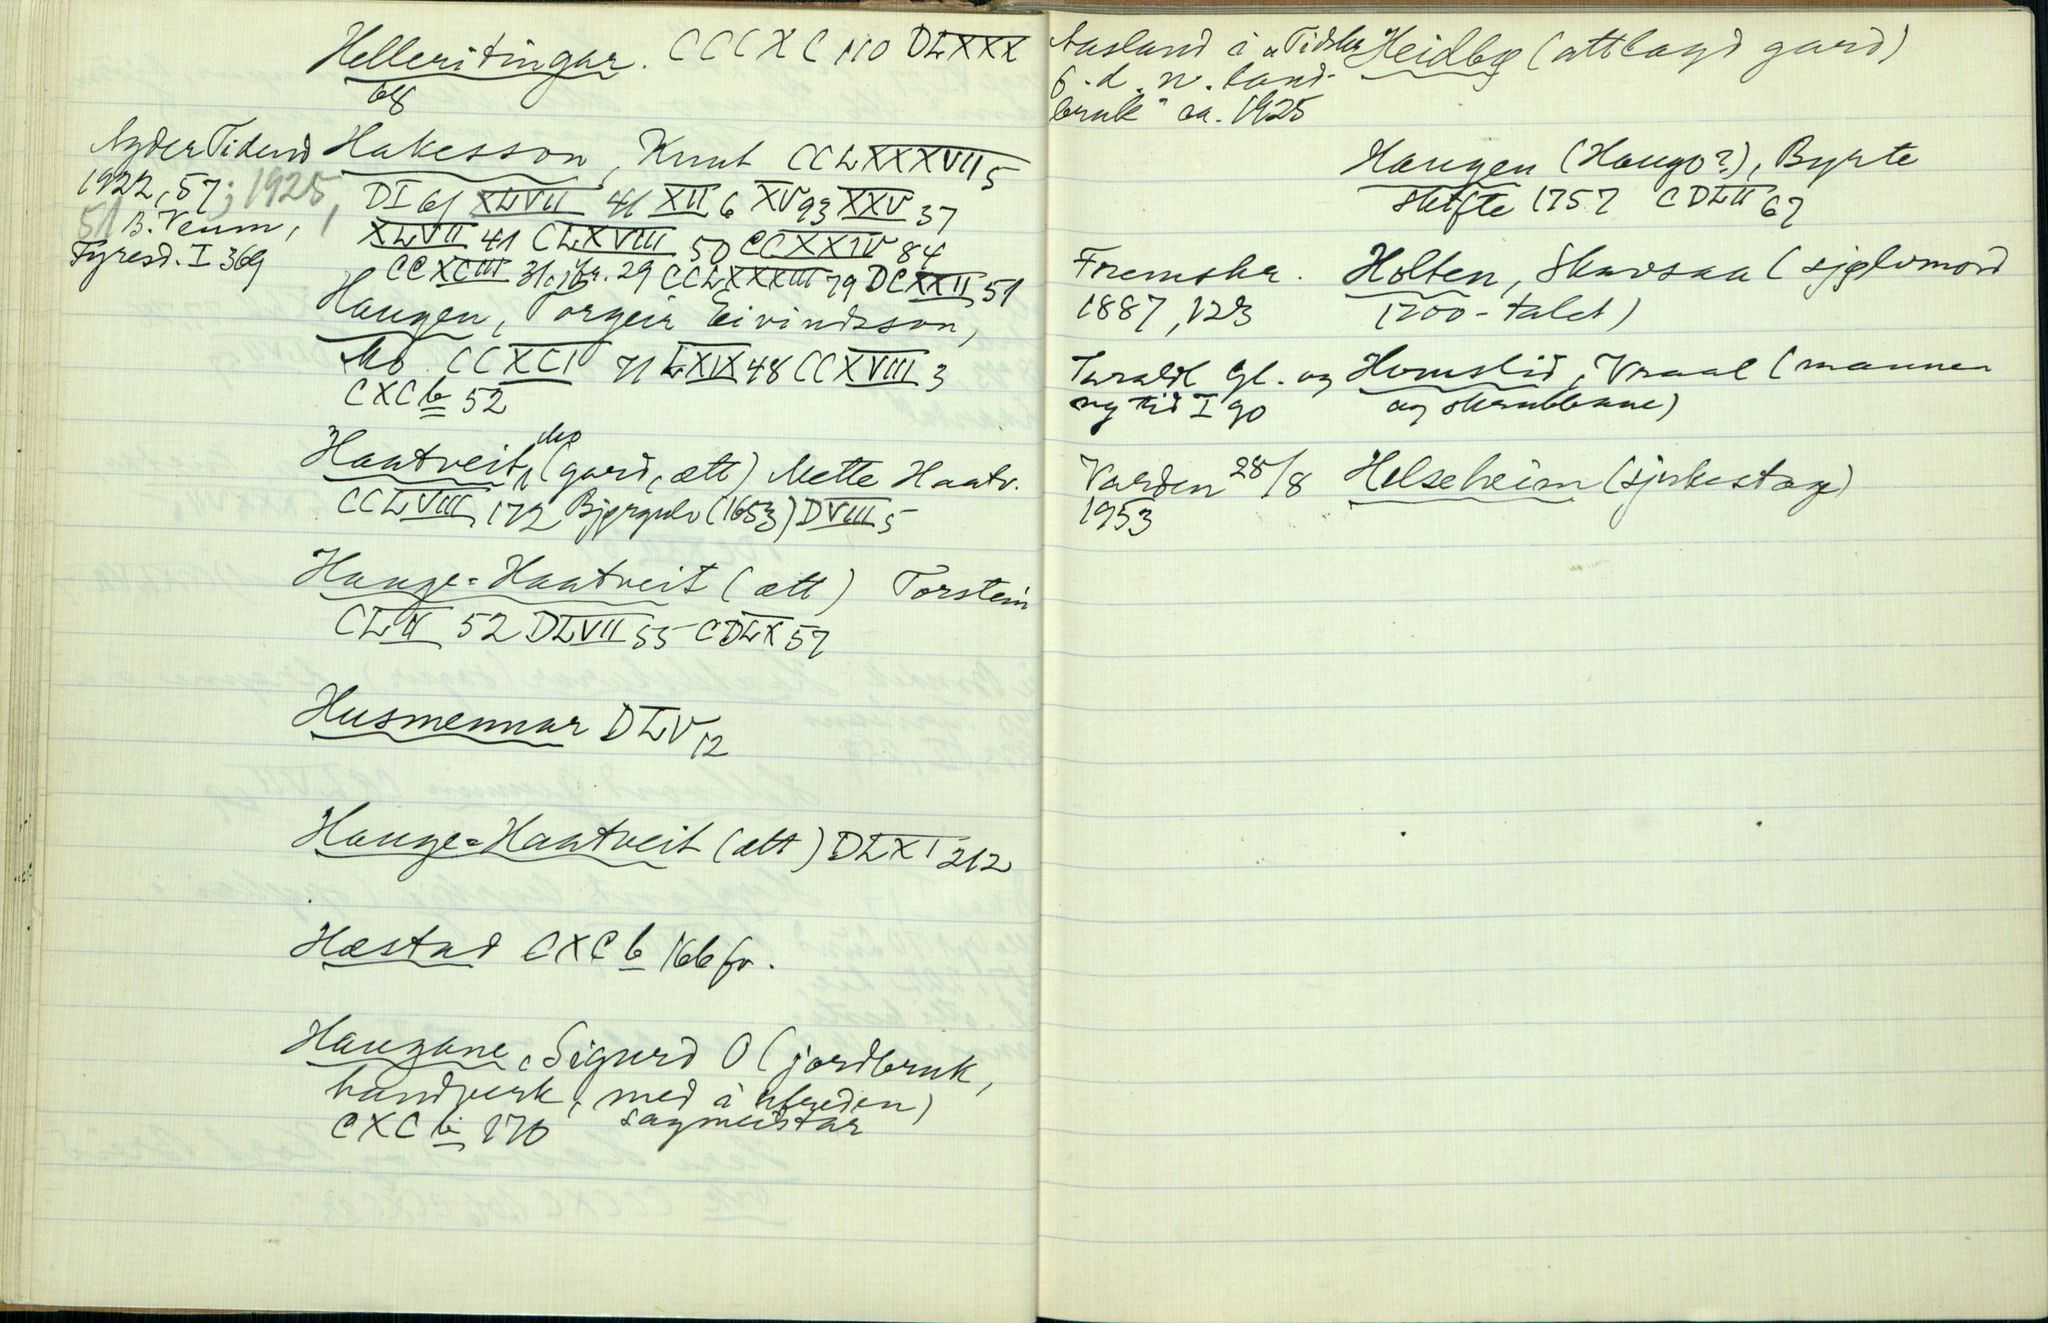 Helleristingar. CCCXC 110 DLXXX
68
Agder Tidend
1922, 57; 1925,
51 B. Veum,
Fyresd. I 369
Hakesson, Knut CCLXXXVII 5
DI 61 XLVII 41 XII 6 XV 93 XXV 37
XLVII 41 CLXVIII 50 CCXXIV 84
CCXCIII 31. 29 CCLXXXIII 79 DCXXII 51
Haugen, Torgeir Eivindsson,
Mo. CCXCI 71 LXIX 48 CCXVIII 3
CXC b 52
Haatveit, Mo (gard, ætt) Mette Haatv.
CCLVIII 172 Bjørgulv (1653) DVIII 5
Hauge-Haatveit (ætt) Torstein
CLII 52 DLVII 55 CDLX 57
Husmennar DLV 12
Hauge-Haatveit (ætt) DLXI 212
Hæstad CXC b 166 fv.
Haugane, Sigurd O (jordbruk,
handverk, med å
sagmeistar
CXC b 170
Aasland i "Tidskr.
f. d. n. land-
bruk" ca. 1925
Heidbø (attlagd gard)
Haugen (Haugo?), Byrte
skifte 1757 CDLII 67
Fremskr.
1887, 123
Holten, Skavsaa (sjølvmord
1700-talet)
Taraldl. Gl. og
ny tid I 90
Homslid, Vraal (mannen
og skrubbane)
Varden 28/8
1953
Helseheim (sjukestoge)